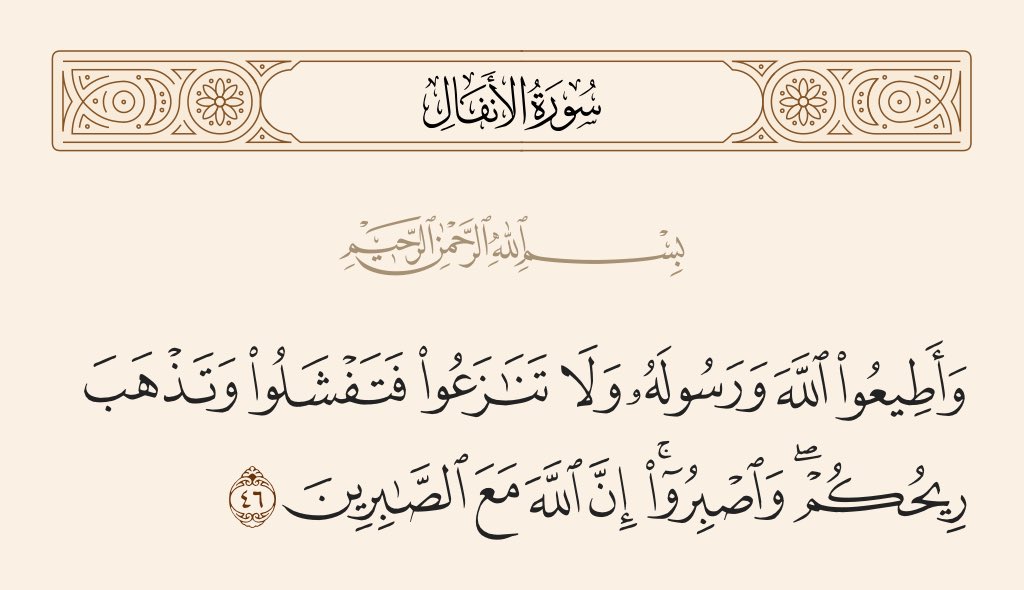 سُورَةُ الأَنفَالِ
بِسْمِ ٱللَّهِ ٱلرَّحْمَٰنِ ٱلرَّحِيمِ
وَأَطِيعُوا۟ ٱللَّهَ وَرَسُولَهُۥ وَلَا تَنَـٰزَعُوا۟ فَتَفْشَلُوا۟ وَتَذْهَبَ
رِيحُكُمْ ۖ وَٱصْبِرُوٓا۟ ۚ إِنَّ ٱللَّهَ مَعَ ٱلصَّـٰبِرِينَ ٤٦